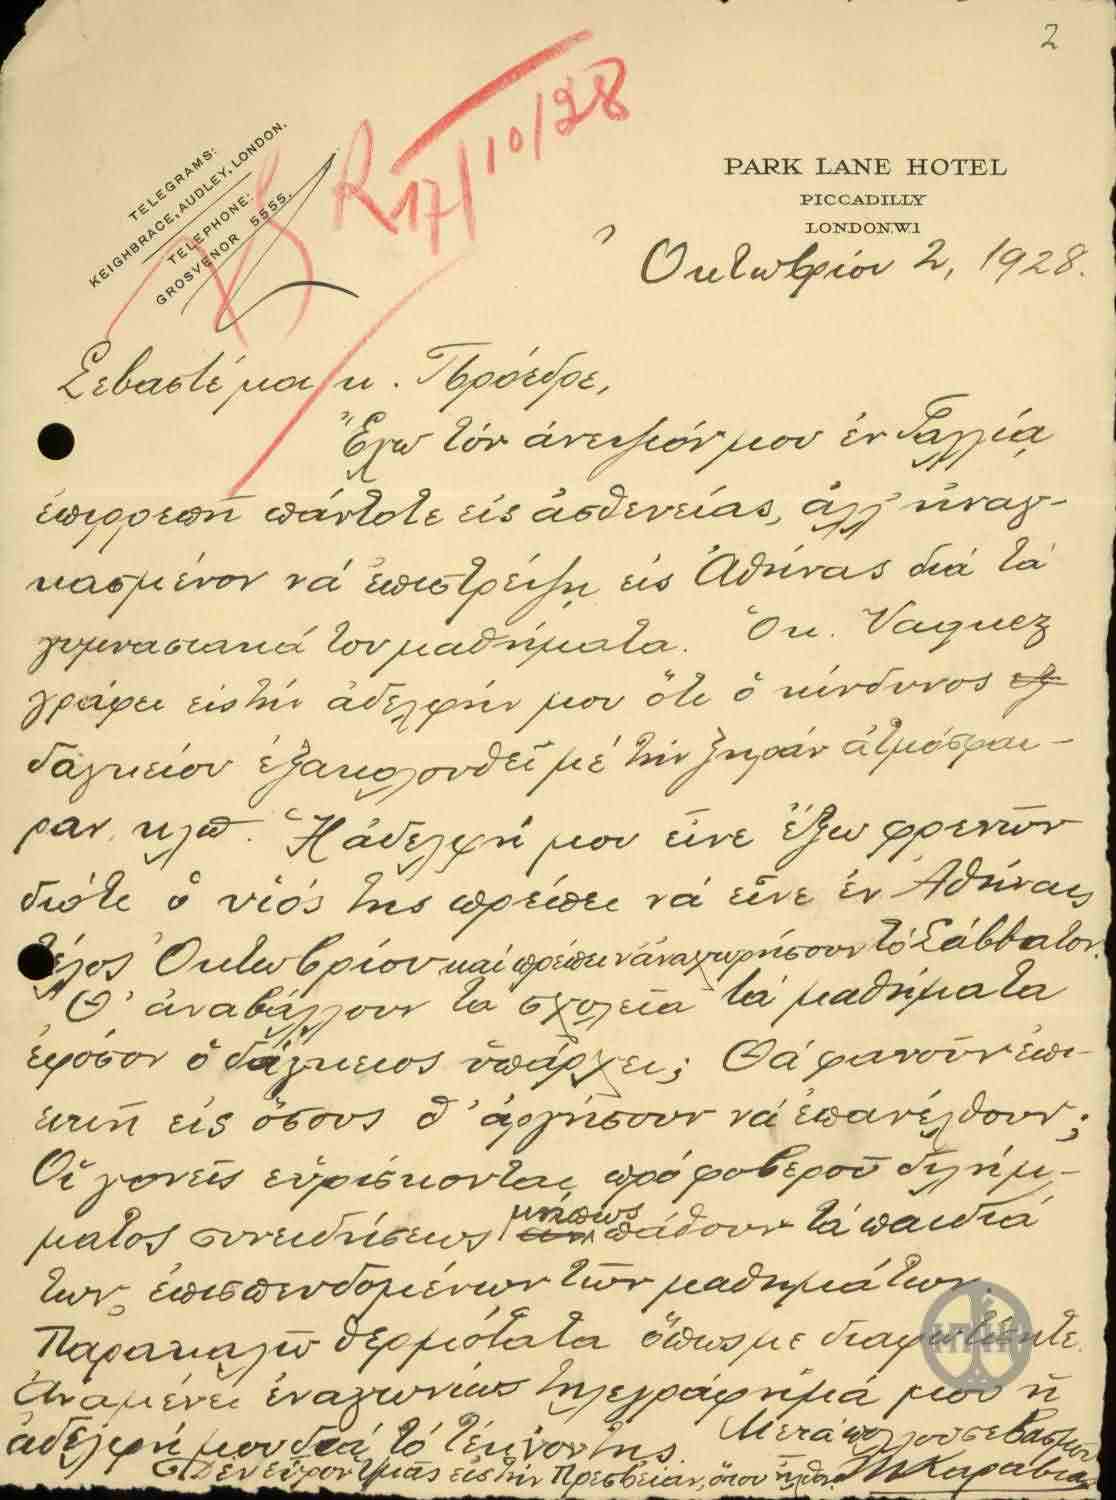 2
TELEGRAMS:
KEIGHBRACE, AUDLEY, LONDON.
TELEPHONE:
GROSVENOR 5555.
R 17/10/28
PARK LANE HOTEL
PICCADILLY
LONDON.W.1
Ὀκτωβρίου 2, 1928.
Σεβαστέ μοι κ. Πρόεδρε,
Ἔχω τόν ἀνεψιόν μου ἐν Γαλλίᾳ,
ἐπιρρεπῆ πάντοτε εἰς ἀσθενείας, ἀλλ' ἠναγ-
κασμένον νά ἐπιστρέψῃ εἰς Ἀθήνας διά τά
γυμνασιακά του μαθήματα. Ὁ κ. Vaquez
γράφει εἰς τήν ἀδελφήν μου ὅτι ὁ κίνδυνος
δαγκείου ἐξακολουθεῖ μέ τήν ξηράν ἀτμόσφαι-
ραν κλπ. Ἡ ἀδελφή μου εἶνε ἔξω φρενῶν
διότι ὁ υἱός της πρέπει νά εἶνε ἐν Ἀθήναις
τέλος Ὀκτωβρίου καί πρέπει ν' ἀναχωρήσουν τό Σάββατον.
Θ' ἀναβάλλουν τα σχολεῖα τά μαθήματα
ἐφόσον ὁ δάγκειος ὑπάρχει; Θά φανοῦν ἐπι-
εικῆ εἰς ὅσους θ' ἀργήσουν νά ἐπανέλθουν;
Οἱ γονεῖς εὑρίσκονται πρό φοβεροῦ διλήμ-
ματος συνειδήσεως μήπως πάθουν τά παιδιά
των, ἐπισπευδομένων τῶν μαθημάτων.
Παρακαλῶ θερμότατα ὅπως με διαφωτίσητε.
Ἀναμένει ἐναγωνίως τηλεγράφημά μου ἡ
ἀδελφή μου διά τό τέκνον της.
Μετά πολλοῦ σεβασμοῦ
Δέν εὗρον ὑμᾶς εἰς τήν Πρεσβείαν, ὅπου ἦλθον.
ΜΠΝΚ